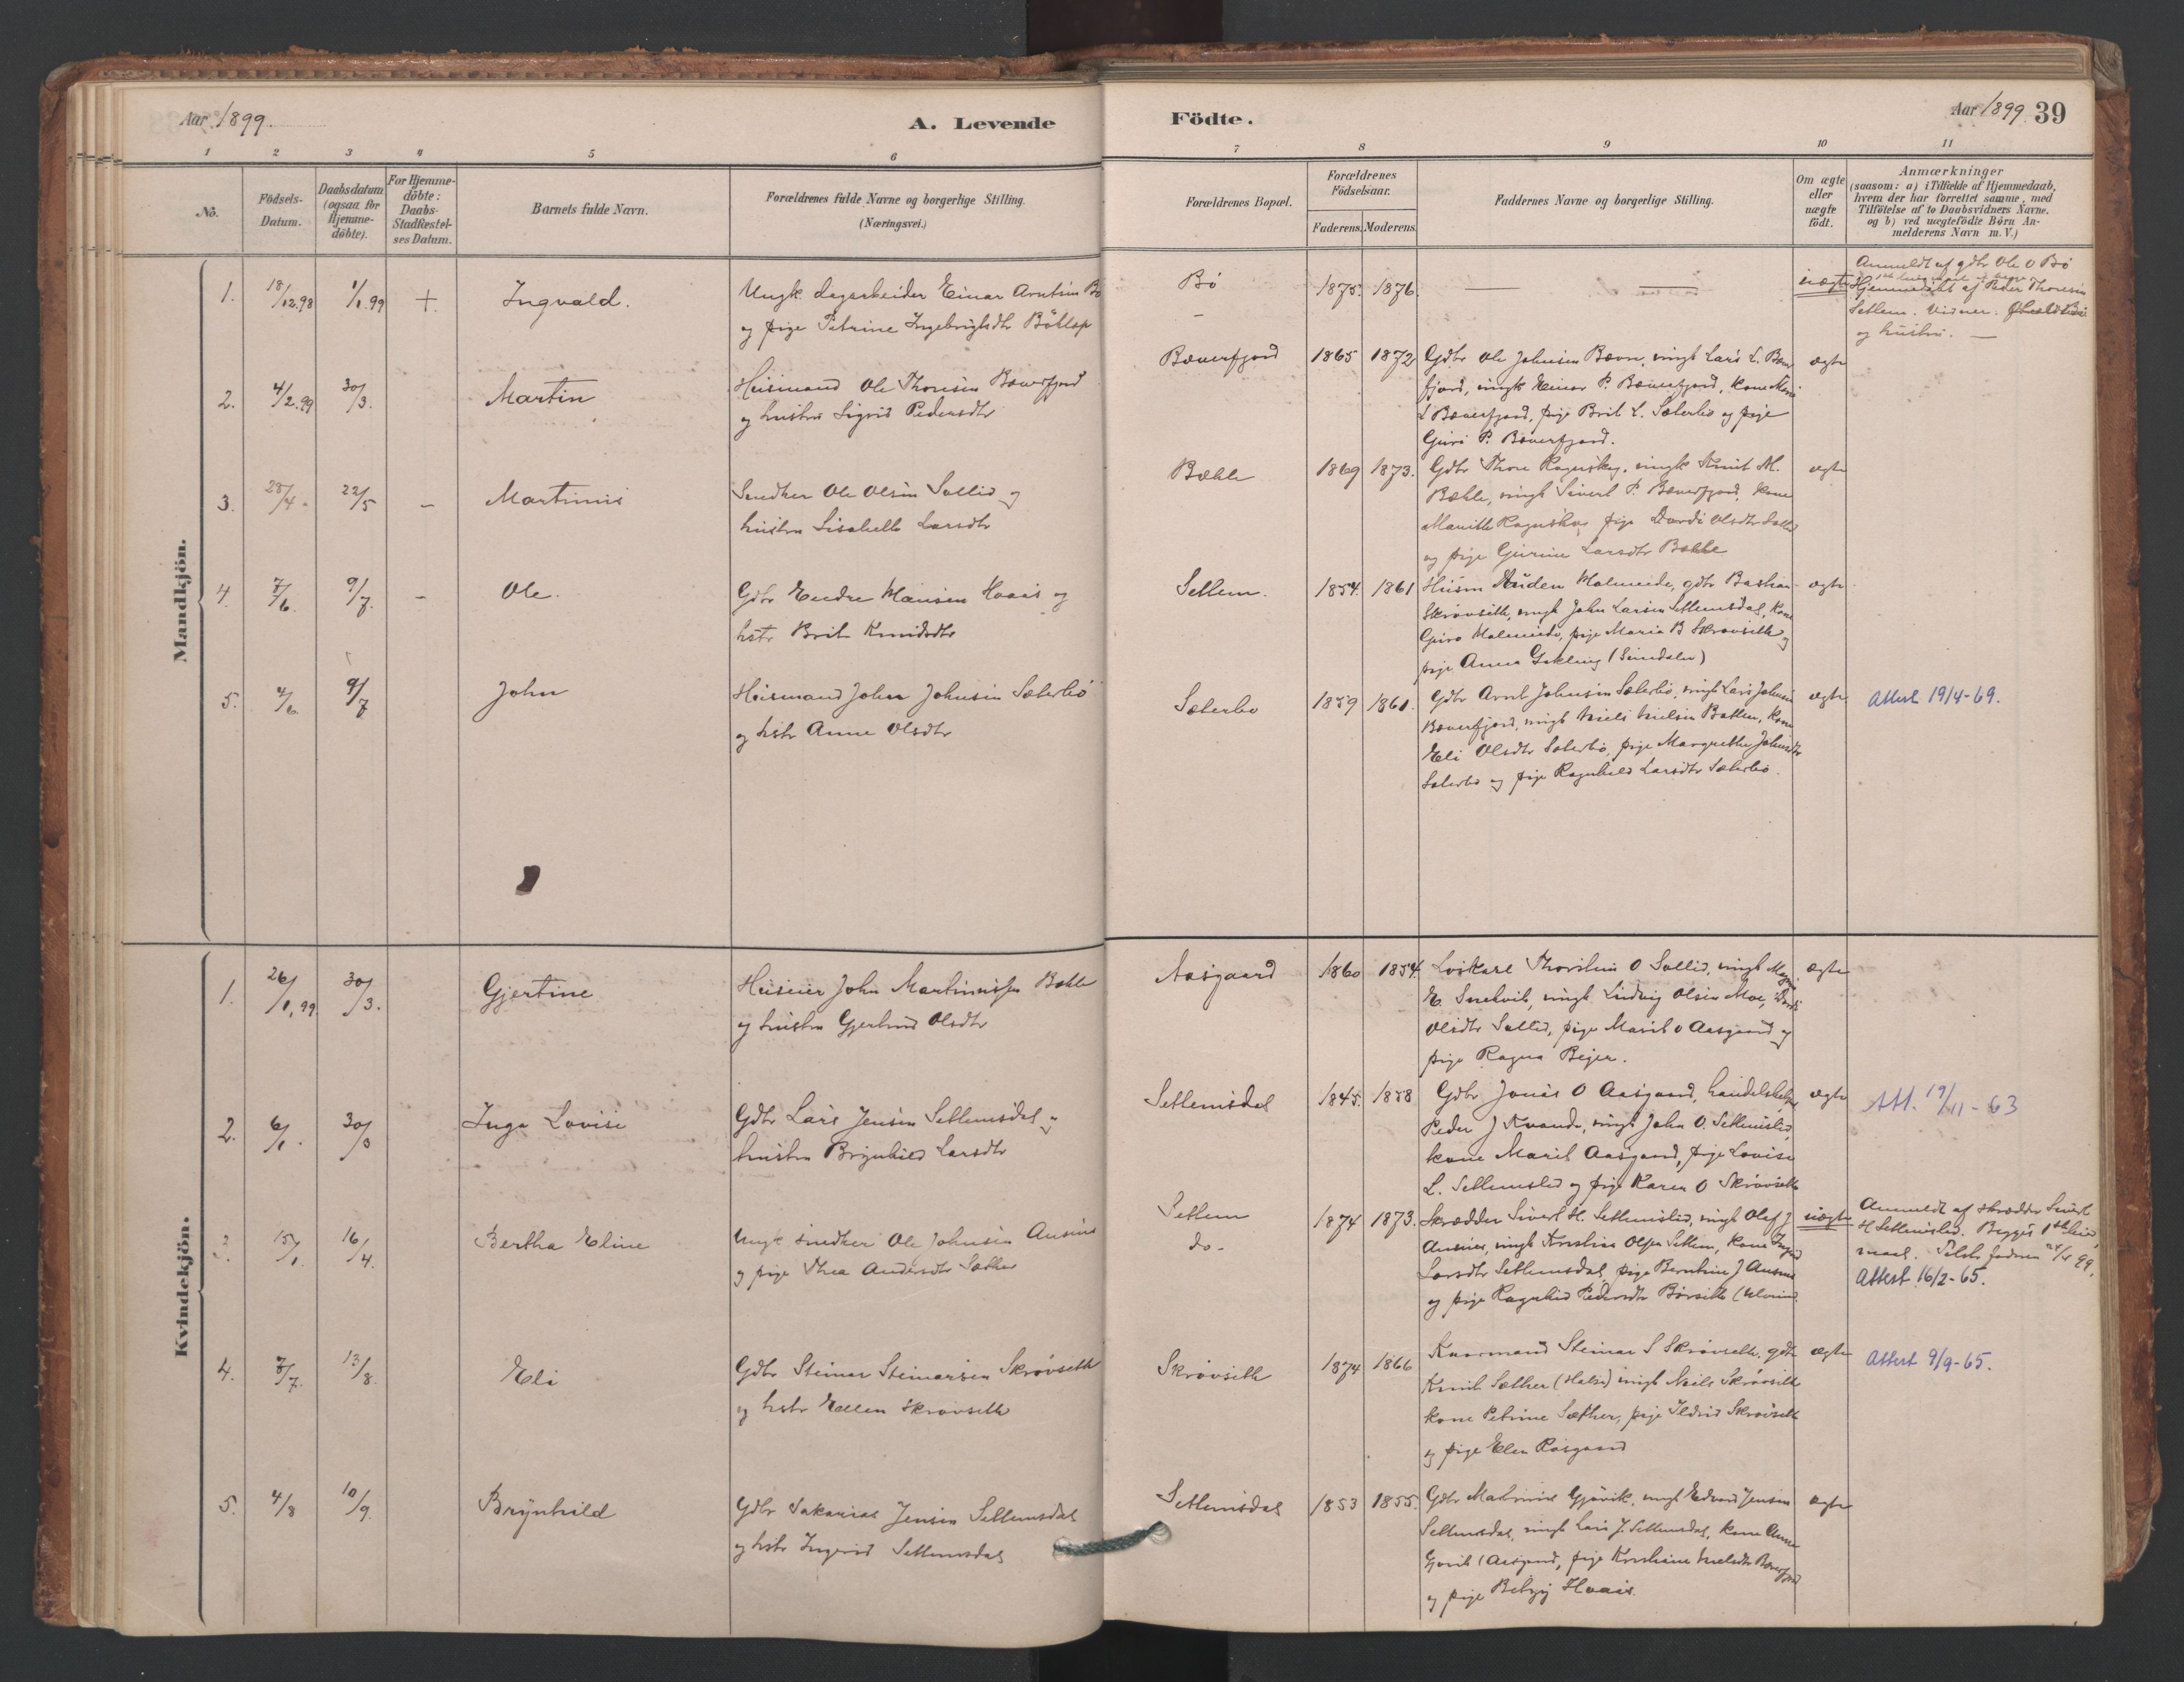 Aar 1899.
A. Levende
Födte.
Aar 1899
39
1 2 3 4 5 6 7 8 9 10 11
No.
Födsels-
Datum.
Daabsdatum
(ogsaa for
Hjemme-
döbte).
For Hjemme-
döbte:
Daabs-
Stadfæstel-
ses Datum.
Barnets fulde Navn.
Forældrenes fulde Navne og borgerlige Stilling.
(Næringsvei.)
Forældrenes Bopæl.
Forældrenes
Födselsaar.
Faderens. Moderens.
Faddernes Navne og borgerlige Stilling.
Om ægte
eller
uægte
födt.
Anmærkninger
(saasom: a) i Tilfælde af Hjemmedaab,
hvem der har forrettet samme, med
Tilföielse af to Daabsvidners Navne.
og b) ved uægtefödte Börn An-
melderens Navn m. V.)
Mandkjön.
1. 18/12.98 1/1.99 + Ingvald.
Ungk. dagarbeider Einar Arntsen Bö
og pige Petrine Ingebrigtsdtr
Bö
1875. 1876.
uægte
Anmeldt af gdbr Ole O Bö
Hjemmedöbt af Peder Thoresen
Settem. Vidner:
og hustru. —
2. 4/2.99 30/3. Martin
Huismand Ole Thoresen Bæverfjord
og hustru Sigrid Pedersdtr
Bæverfjord 1865 1872
Gdbr Ole Johnsen Bævre, ungk Lars L. Bæver
fjord, ungk Einar P. Bæverfjord, kone
L Bæverfjord, pige Brit L. Sæterbö og pige
Guri P. Bæverfjord.
ægte
3. 28/4 22/5 – Martinus
Snedker Ole Olsen Sollid og
hustru Lisabeth Larsdtr
Bæhle 1869 1873.
Gdbr Thore ungk Knut M.
Bæhle, ungk Sivert P. Bæverfjord, kone
Marith pige Dordi Olsdtr Sollid
og pige Gurine Larsdtr Bæhle
ægte
4. 7/6. 9/7. – Ole.
Gdbr Endre Hansen Haais og
hstr Brit Knudsdtr
Settem. 1854. 1861
Huism Auden Halmeide, gdbr Bastian
Skrövseth, ungk John Larsen Settemsdal, kone
Guro Halmeide, pige Maria B Skrövseth og
pige Anna Gikling (Sundalen)
ægte
5. 4/6 9/7 John
Huismand John Johnsen Sæterbö
og hstr Anne Olsdtr
Sæterbö 1859 1861.
Gdbr Arnt Johnsen Sæterbö, ungk Lars Johnsen
Bæverfjord, ungk Nils Nilsen kone
Eli Olsdtr Sæterbö, pige Margrethe Johnsdtr
Sæterbö og pige Ragnhild Larsdtr Sæterbö.
ægte
Attest 19/4-69.
Kvindekjön.
1. 26/1,99 30/3. Gjertine
Huseier John Martinussen Bæhle
og hustru Gjertrud Olsdtr
Aasgaard 1860 1854.
Löskarl Thorstein O Sollid, ungk
E. ungk Ludvig Olsen Moe, Dordi
Olsdtr Sollid, pige Marit O Aasgaard og
pige Ragna Bejer.
ægte
2. 6/1. 30/3 Inga Lovise
Gdbr Lars Jensen Settemsdal og
hustru Brynhild Larsdtr
Settemsdal 1845. 1858
Gdbr Jonas O Aasgaard,
Peder J Kvande, ungk John O. Settemslid,
kone Marit Aasgaard, pige Lovise
L. Settemslid og pige Karen O Skrövseth
ægte
Att. 19/11-63
3. 15/1. 16/4. Bertha Eline
Ungk snedker Ole Johnsen Ansnes
og pige Thea Andersdtr Sæther
Settem
do-
1874 1873.
Skrædder Sivert H. Settemslid, ungk Olaf J
Ansnes, ungk Kristian Olsen Settem, kone Ingrid
Larsdtr Settemsdal, pige Berntine J Ansnes
og pige Ragnhild Pedersdtr Börseth
uægte
Anmeldt af skrædder Sivert
H Settemslid. Begges 1ste leier
maal.
Attest 16/2-65.
4. 7/7. 13/8. Eli
Gdbr Steinar Steinarsen Skrövseth
og hstr Ellen Skrövseth
Skrövseth 1874 1866
Kaarmand Steinar S Skrövseth, gdbr
Knut Sæther (Halse) ungk Nils Skrövseth
kone Petrine Sæther, pige Ildrid Skrövseth
og pige Elen Aasgaard
ægte
Attest 9/9-65.
5. 4/8 10/9. Brynhild
Gdbr Sakarias Jensen Settemsdal
og hstr Ingerid Settemsdal
Settemsdal 1853 1855.
Gdbr Martinius Gjövik, ungk Edvard Jensen
Settemsdal, ungk Lars J. Settemsdal, kone Anne
Gjövik (Aasgaard, pige Kristiane Nilsdtr Bæverfjord
og pige Betzy Haais.
ægte